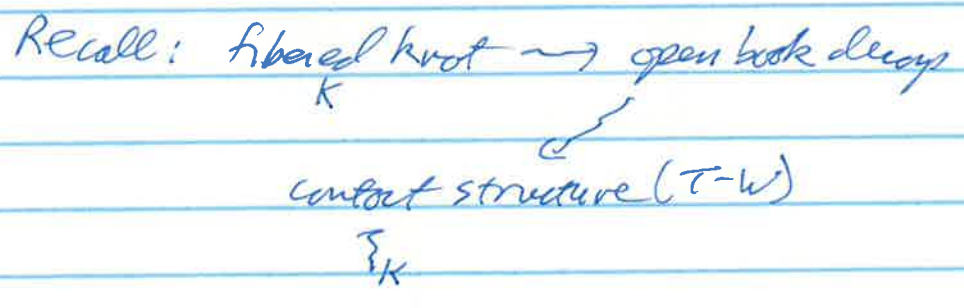 Recall: fibered knot → open book decomps
K
contact structure (T-W)
ξ_K